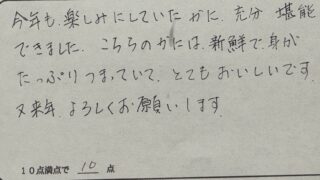 今年も、楽しみにしていたかに、充分 堪能
できました。こちらのかには、新鮮で、身が
たっぷりつまっていて、とてもおいしいです。
又来年、よろしくお願いします。
10点満点で 10 点